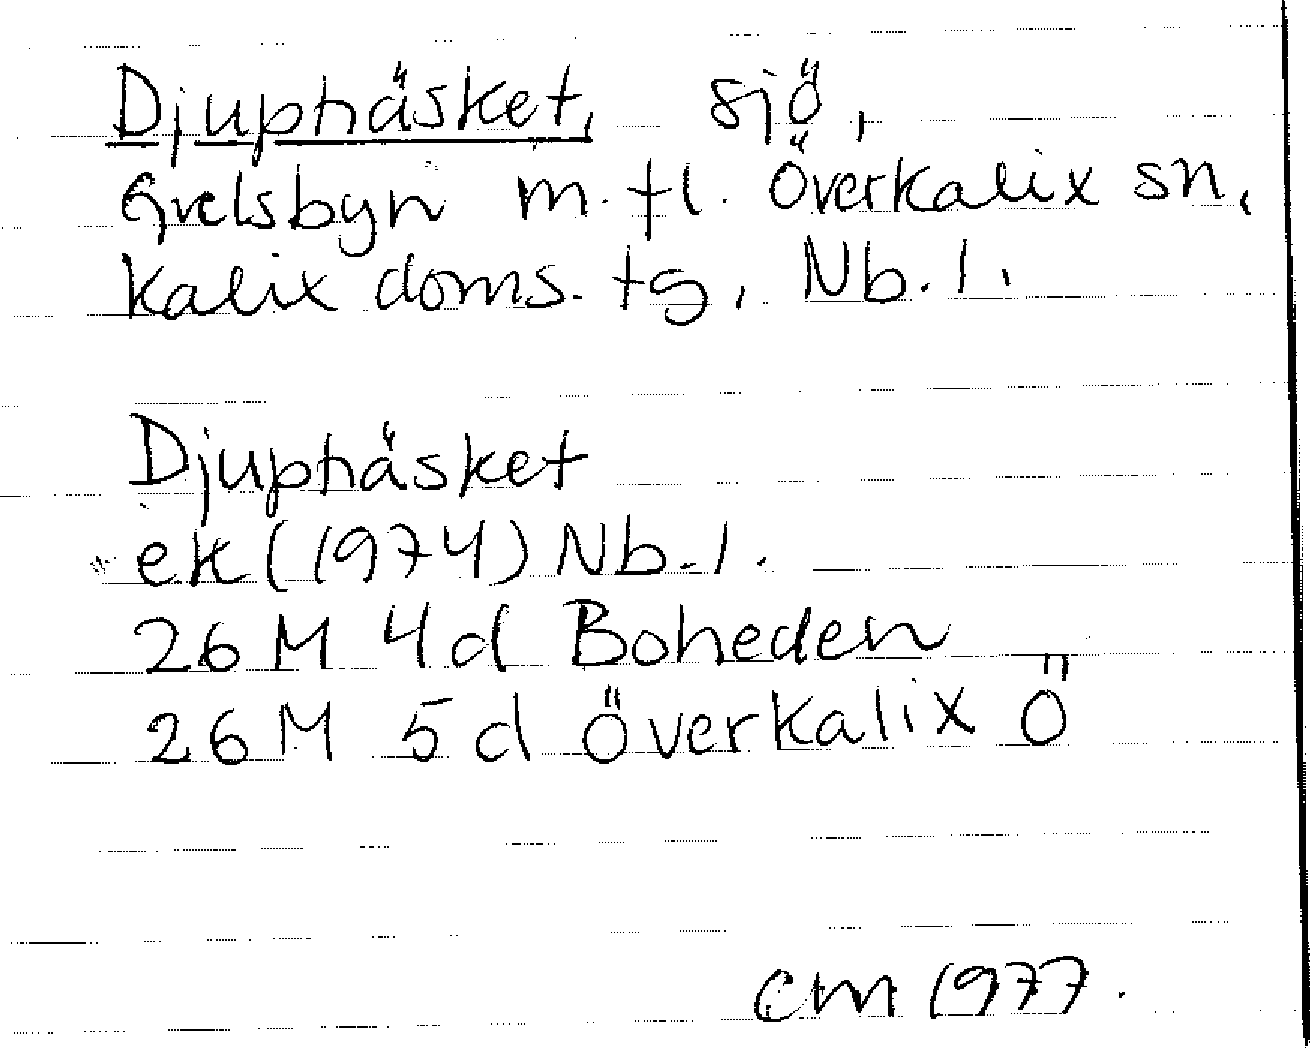 Djupträsket, sjö,
Grelsbyn m. fl. Överkalix sn,
Kalix doms. tg, Nb. l.
Djupträsket
ek (1974) Nb. l.
26 M 4d Boheden
26 M 5d Överkalix Ö
CM 1977.